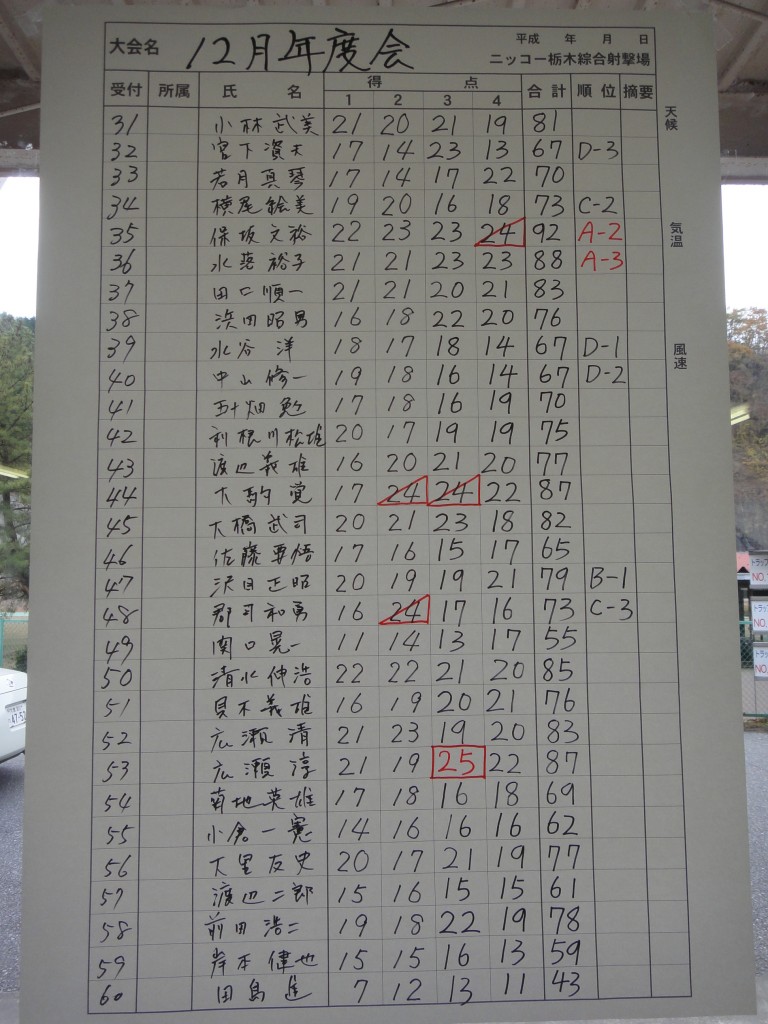 大会名 12月年度会 平成 年 月 日
ニッコー栃木綜合射撃場
受付 所属 氏 名 得 点 合計 順位 摘要
1 2 3 4
天候
気温
風速
31 小林武美 21 20 21 19 81
32 宮下資夫 17 14 23 13 67 D-3
33 若月真琴 17 14 17 22 70
34 横尾絵美 19 20 16 18 73 C-2
35 保坂文裕 22 23 23 24 92 A-2
36 水落裕子 21 21 23 23 88 A-3
37 田口順一 21 21 20 21 83
38 浜田昭男 16 18 22 20 76
39 水谷 洋 18 17 18 14 67 D-1
40 中山修一 19 18 16 14 67 D-2
41 五十畑勉 17 18 16 19 70
42 利根川松雄 20 17 19 19 75
43 渡辺義雄 16 20 21 20 77
44 大 覚 17 24 24 22 87
45 大橋武司 20 21 23 18 82
46 佐藤要悟 17 16 15 17 65
47 沢目正昭 20 19 19 21 79 B-1
48 郡司和勇 16 24 17 16 73 C-3
49 関口晃一 11 14 13 17 55
50 清水伸浩 22 22 21 20 85
51 貝木義雄 16 19 20 21 76
52 広瀬 清 21 23 19 20 83
53 広瀬 淳 21 19 25 22 87
54 菊地英雄 17 18 16 18 69
55 小倉一憲 14 16 16 16 62
56 大里友史 20 17 21 19 77
57 渡辺二郎 15 16 15 15 61
58 前田浩二 19 18 22 19 78
59 岸本健也 15 15 16 13 59
60 田島進 7 12 13 11 43